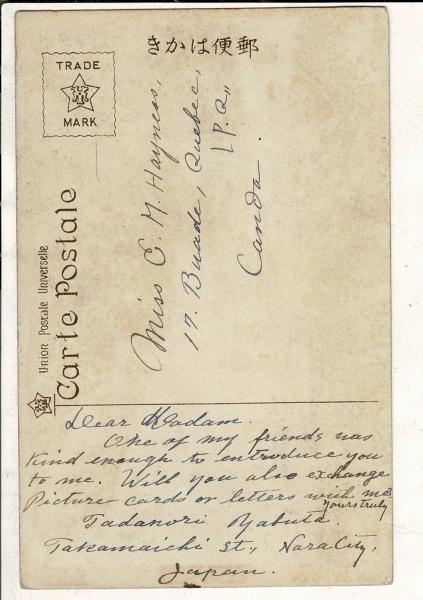 きかは便郵
TRADE
MARK
Union Postale Universelle
Carte Postale
Miss E. M. Hayness,
17. Buade, Quebec,
P. Q.,
Canda.
Dear Madam.
One of my friends was
kind enough to entroduce you
to me. Will you also exchange
Picture cards or letters with me.
Yours truly
Tadanori Yabuta.
Takamaichi St., Nara City,
Japan.